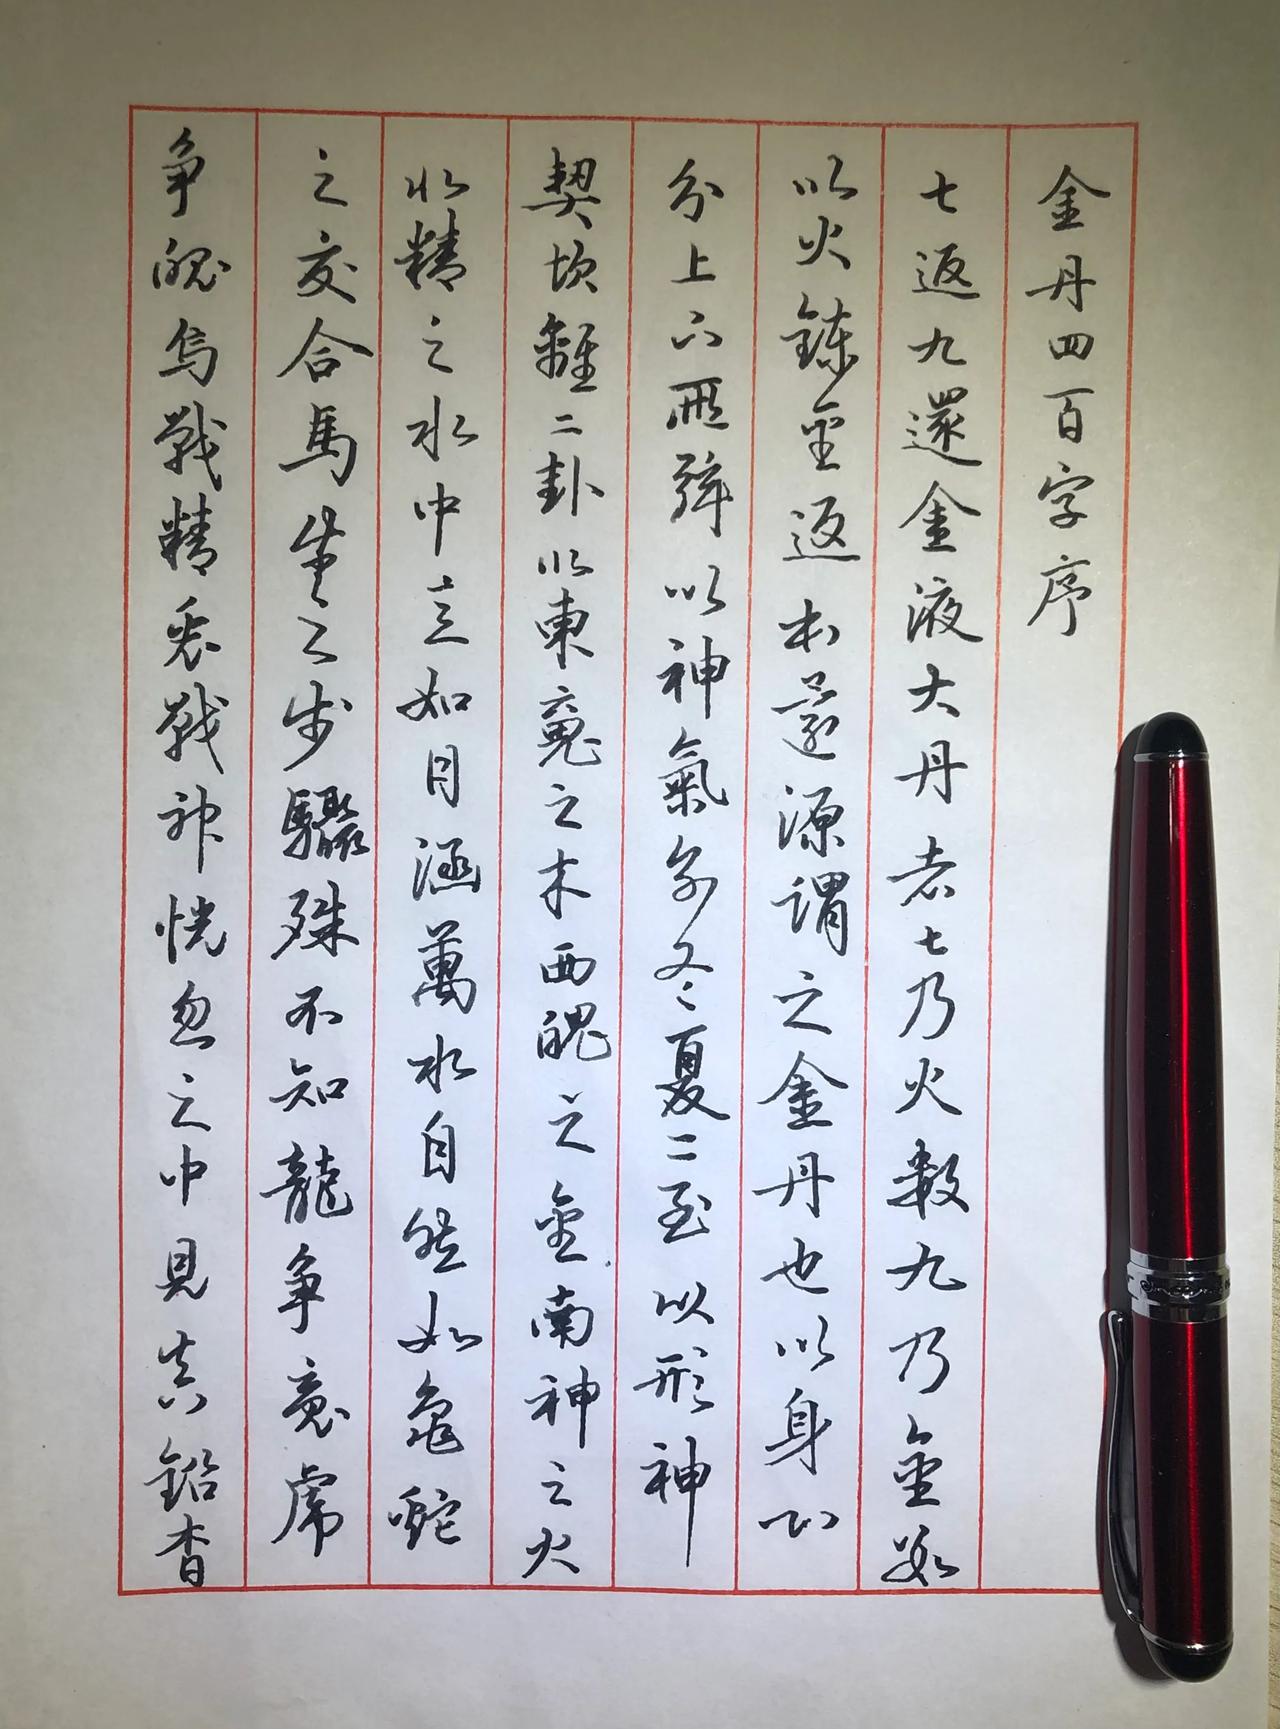 金丹四百字序
七返九還金液大丹者七乃火數九乃金數
以火鍊金返本還源謂之金丹也以身心
分上下兩弦以神氣分冬夏二至以形神
契坎離二卦以東魂之木西魄之金南神之火
北精之水中立如月涵萬水自然如龜蛇
之交合馬牛之步驟殊不知龍争魂虎
争魄烏戰精兔戰神恍忽之中見真鉛杳